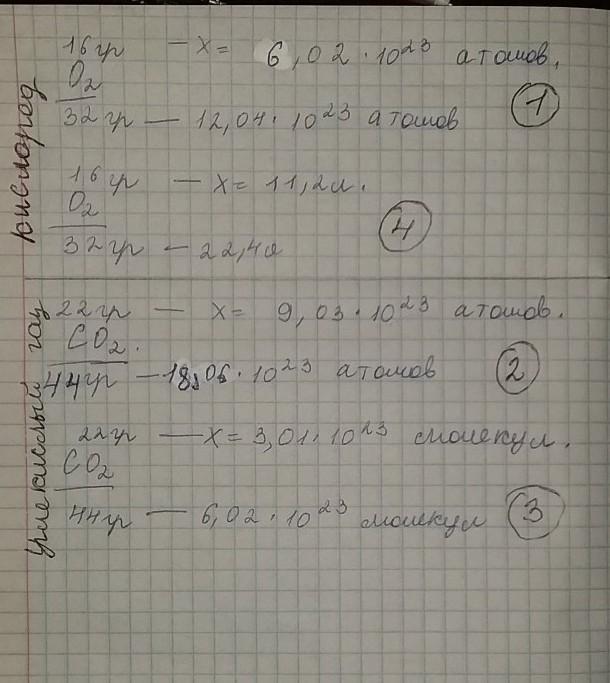 Кислород
16гр — x = 6,02 · 10²³ атомов.
O₂
32гр — 12,04 · 10²³ атомов
1
16гр — x = 11,2л.
O₂
32гр — 22,4л
4
Углекислый газ
22гр — x = 9,03 · 10²³ атомов.
CO₂.
44гр — 18,06 · 10²³ атомов
2
22гр — x = 3,01 · 10²³ молекул.
CO₂
44гр — 6,02 · 10²³ молекул
3